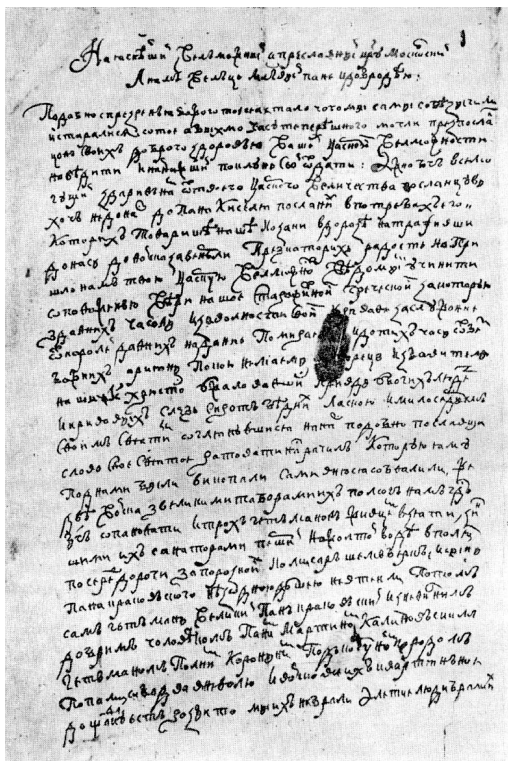 Наяснѣйший Велможний и преславний цару Московский
А намъ Велце Млстивый пане и добродѣю:
Подобно с презрѣня Бжого тое ся стало чого мы сами собѣ зичили
и старалися о тое абысмо часу теперешного могли през посла
нцовъ своихъ доброго здоровья Вашей Царской Велможности
навѣдити и найнизший поклонъ свой отдати: Ажно Бгъ всемо
гущий здарилъ нам от твоего Царского Величества посланцовъ
хочъ не до нас до Пана Киселя посланих в потребах его,
которихъ Товариши наши Козаки в дорозѣ натрафивши
до насъ до войска завернули. През которихъ радосно нам при
шло намъ твою Царскую Велможность вѣдомимъ учинити
о повоженю вѣри нашое старожитной греческой за которую
з давнихъ часовъ и за волности свои криваве заслужоние
от королей давнихъ наданние помираемъ и до тихъ часъ от без
божнихъ ариянъ покою не маемъ творецъ избавитель
нашъ Ісъ Христосъ ужаловавшися кривдъ убогихъ людей
и кривавихъ слезъ сиротъ бѣднихъ ласкою и милосердиемъ
своимъ святимъ оглянувшися на насъ подобно пославши
слово свое святое ратовати насъ рачилъ. Которую яму
под нами били викопали сами в ню ся обвалили, же
двѣ войска з великими таборами их помогъ намъ гдь
бгъ опановати и трохъ гетмановъ живцемъ взяти з ин
шими ихъ санаторами перший на Жолтой водѣ в полю
посередъ дороги запорозкой комисаръ Шемберкъ и синъ
пана краковского нѣ з одною душею не втекли. Потомъ
самъ гетманъ Великий панъ краковский из невиннимъ
добримъ чоловѣкомъ паномъ Мартиномъ Калиновскимъ
гетманомъ полнимъ короннимъ под Корсуномъ городомъ
попали ся обадва в неволю и войско все ихъ квартянное
до щадку естъ розбито ми ихъ не брали але тие люди брали их